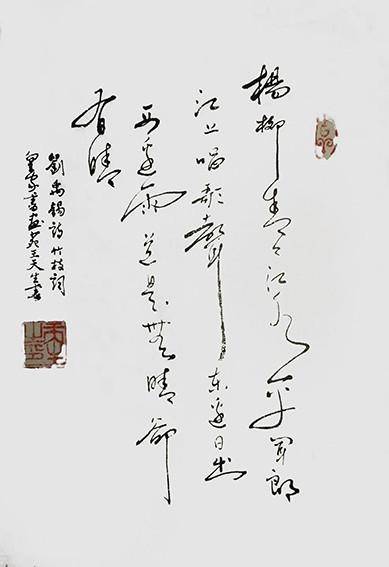 楊柳青々江水平聞郎
江上唱歌聲東邊日出
西邊雨道是無晴卻
有晴
劉禹錫詩竹枝詞
皇家書畫苑王天生書